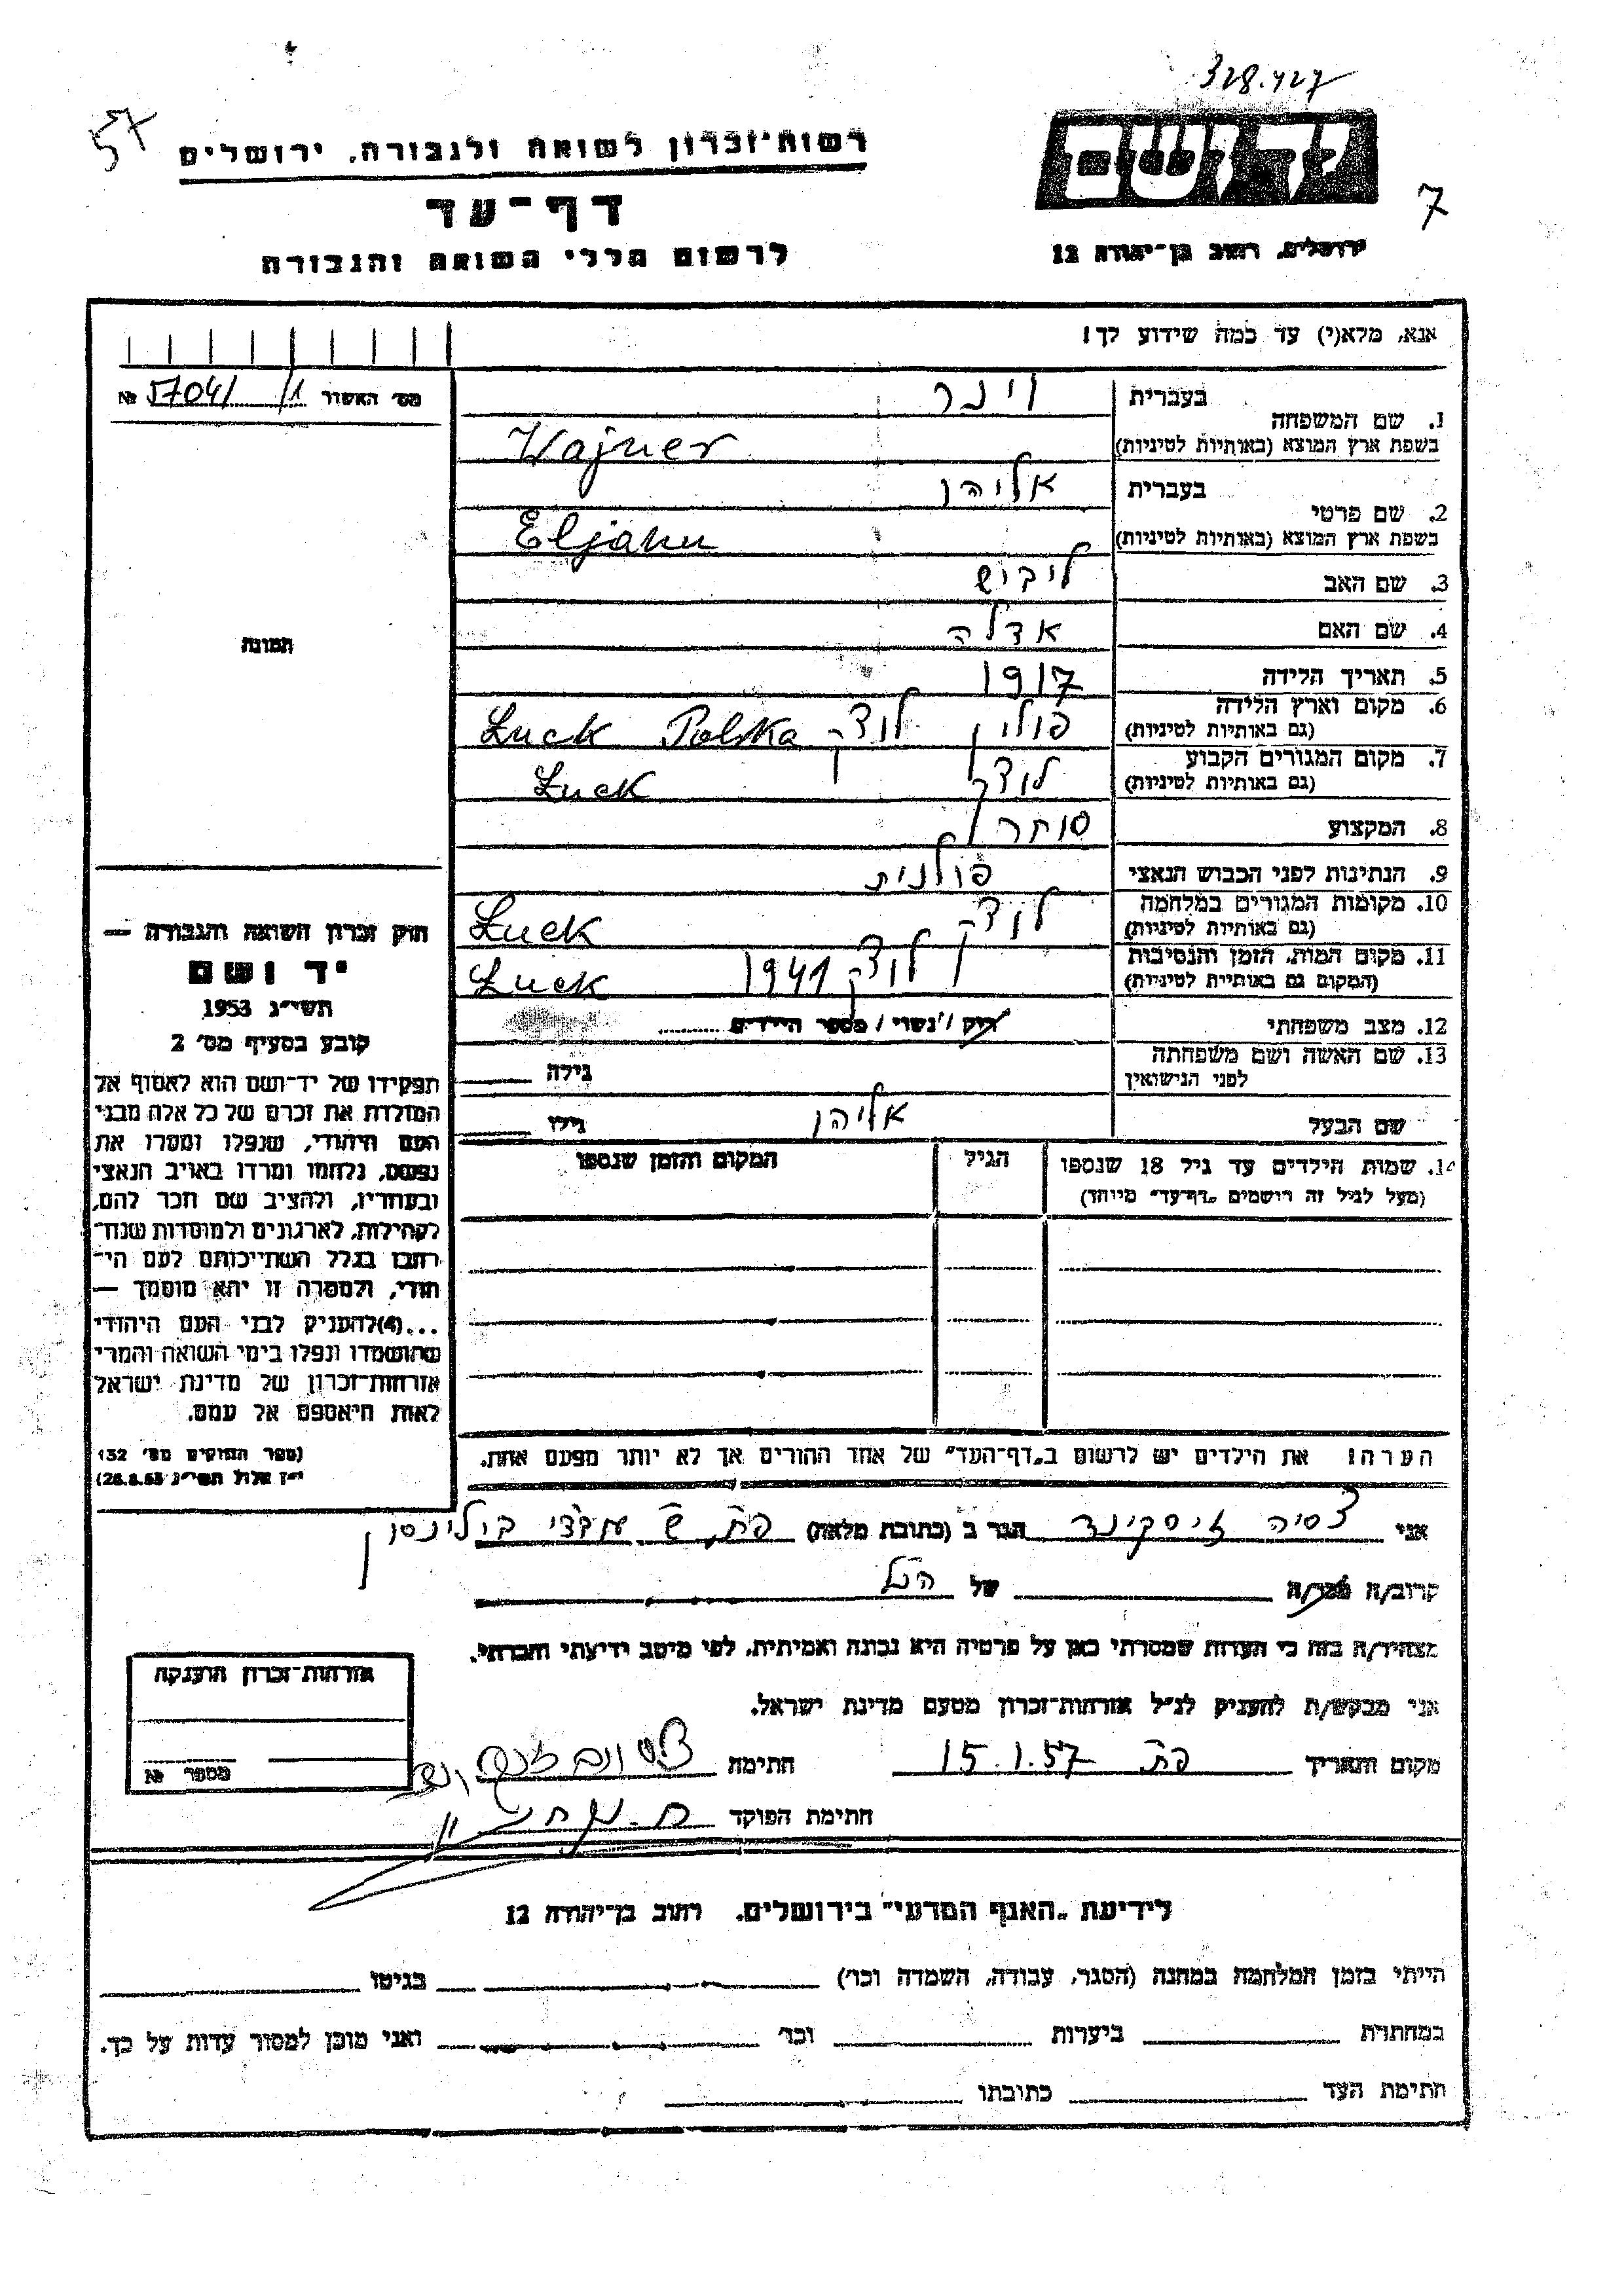 328.427
57
רשות־זכרון לשואה ולגבורה, ירושלים
יד ושם
7
דף־עד
ירושלים, רחוב בן־יהודה 12
לרשום חללי השואה והגבורה
אנא, מלא(י) עד כמה שידוע לך!
מס׳ האשור 57041/1 №
בעברית וינר
1. שם המשפחה
בשפת ארץ המוצא (באותיות לטיניות) Wajner
בעברית אליהו
2. שם פרטי
בשפת ארץ המוצא (באותיות לטיניות) Eljahu
3. שם האב לייביש
4. שם האם אדלה
תמונה
5. תאריך הלידה 1917
6. מקום וארץ הלידה
(גם באותיות לטיניות) פולין לודק Polska Luck
7. מקום המגורים הקבוע
(גם באותיות לטיניות) לודק Luck
8. המקצוע סוחר
9. הנתינות לפני הכבוש הנאצי פולנית
10. מקומות המגורים במלחמה
(גם באותיות לטיניות) לודק Luck
11. מקום המות, הזמן והנסיבות
(המקום גם באותיות לטיניות) לודק 1941 Luck
12. מצב משפחתי רוק / נשוי / מספר הילדים
13. שם האשה ושם משפחתה
לפני הנישואין גילה
שם הבעל אליהו גילו
14. שמות הילדים עד גיל 18 שנספו הגיל המקום והזמן שנספו
(מעל לגיל זה רושמים „דף־עד” מיוחד)
חוק זכרון השואה והגבורה —
יד ושם
תשי״ג 1953
קובע בסעיף מס׳ 2
תפקידו של יד־ושם הוא לאסוף אל
המולדת את זכרם של כל אלה מבני
העם היהודי, שנפלו ומסרו את
נפשם, נלחמו ומרדו באויב הנאצי
ובעוזריו, ולהציב שם וזכר להם,
לקהילות, לארגונים ולמוסדות שנח־
רבו בגלל השתייכותם לעם היה־
ודי, ולמטרה זו יהא מוסמך —
...(4)להעניק לבני העם היהודי
שהושמדו ונפלו בימי השואה והמרי
אזרחות־זכרון של מדינת ישראל
לאות היאספם אל עמם.
(ספר החוקים מס׳ 132
י״ז אלול תשי״ג 28.8.53)
הערה! את הילדים יש לרשום ב„דף־העד” של אחד ההורים אך לא יותר מפעם אחת.
אני זיסקינד הגר ב (כתובת מלאה) פת, בילינסון
קרוב/ה מכר/ה של הנ״ל
מצהיר/ה בזה כי העדות שמסרתי כאן על פרטיה היא נכונה ואמיתית, לפי מיטב ידיעתי והכרתי.
אני מבקש/ת להעניק לנ״ל אזרחות־זכרון מטעם מדינת ישראל.
מקום ותאריך פת 15.1.57 חתימה
חתימת הפוקד
אזרחות־זכרון הוענקה
מספר №
לידיעת „האגף המדעי” בירושלים, רחוב בן־יהודה 12
הייתי בזמן המלחמה במחנה (הסגר, עבודה, השמדה וכו׳) בגיטו
במחתרת ביערות וכו׳ ואני מוכן למסור עדות על כך.
חתימת העד כתובתו